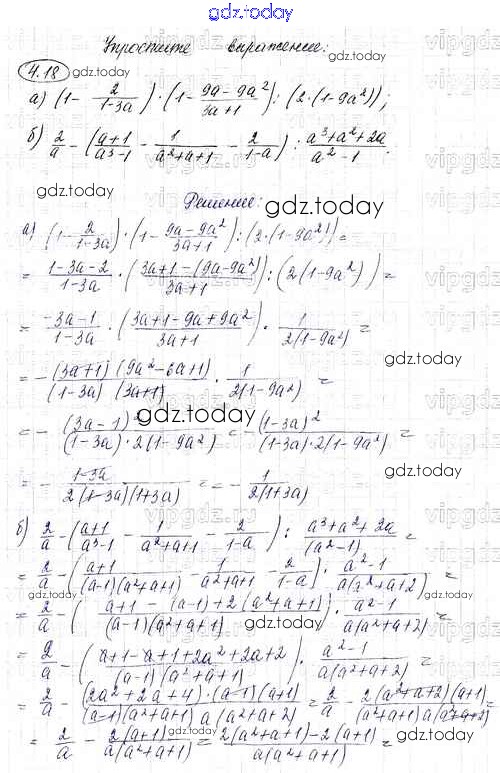 gdz.today
Упростите выражение:
4.18 gdz.today
а) (1 - 2/(1-3a)) · (1 - (9a-9a²)/(3a+1)) : (2·(1-9a²));
б) 2/a - ((a+1)/(a³-1) - 1/(a²+a+1) - 2/(1-a)) : (a³+a²+2a)/(a²-1).
gdz.today
Решение:
gdz.today
а) (1 - 2/(1-3a)) · (1 - (9a-9a²)/(3a+1)) : (2·(1-9a²)) =
= (1-3a-2)/(1-3a) · ((3a+1-(9a-9a²))/(3a+1)) : (2(1-9a²)) =
gdz.today
= (-3a-1)/(1-3a) · ((3a+1-9a+9a²)/(3a+1)) · 1/(2(1-9a²)) =
gdz.today
= - ((3a+1)(9a²-6a+1))/((1-3a)(3a+1)) · 1/(2(1-9a²)) =
= - (3a-1)²/((1-3a)·2(1-9a²)) = - (1-3a)²/((1-3a)·2(1-9a²)) =
gdz.today
= - (1-3a)/(2(1-3a)(1+3a)) = - 1/(2(1+3a))
gdz.today
б) 2/a - ((a+1)/(a³-1) - 1/(a²+a+1) - 2/(1-a)) : (a³+a²+2a)/(a²-1) =
= 2/a - ((a+1)/((a-1)(a²+a+1)) - 1/(a²+a+1) - 2/(1-a)) · (a²-1)/(a(a²+a+2)) =
= 2/a - ((a+1-(a-1)+2(a²+a+1))/((a-1)(a²+a+1))) · (a²-1)/(a(a²+a+2)) =
gdz.today
= 2/a - ((a+1-a+1+2a²+2a+2)/((a-1)(a²+a+1))) · (a²-1)/(a(a²+a+2)) =
= 2/a - ((2a²+2a+4)·(a-1)(a+1))/((a-1)(a²+a+1)a(a²+a+2)) = 2/a - (2(a²+a+2)(a+1))/((a²+a+1)a(a²+a+2)) =
= 2/a - (2(a+1))/(a(a²+a+1)) = (2(a²+a+1)-2(a+1))/(a(a²+a+1)) =
gdz.today